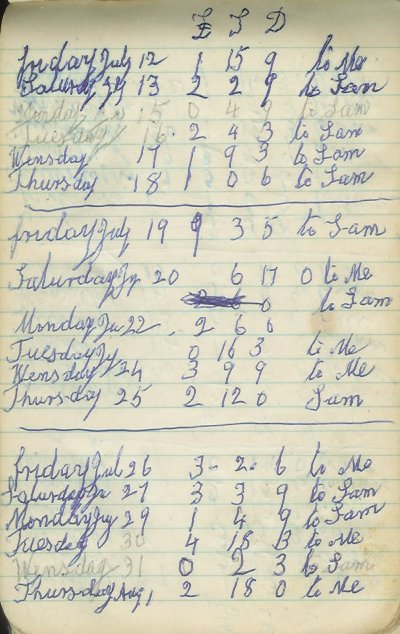 £ S D
Friday July 12 1 15 9 to Me
Saturday July 13 2 2 9 to Sam
Monday Ju 15 0 4 3 to Sam
Tuesday 16 2 4 3 to Sam
Wensday 17 1 9 3 to Sam
Thursday 18 1 0 6 to Sam
Friday July 19 9 3 5 to Sam
Saturday Jy 20 6 17 0 to Me
to Sam
Monday Ju 22 2 6 0
Tuesday Jy 0 16 3 to Me
Wensday 24 3 9 9 to Me
Thursday 25 2 12 0 Sam
Friday Jul 26 3 - 2 - 6 to Me
Saturday 27 3 3 9 to Sam
Monday Jy 29 1 4 9 to Sam
Tuesday 30 4 18 3 to Me
Wensday 31 0 2 3 to Sam
Thursday Aug 1 2 18 0 to Me